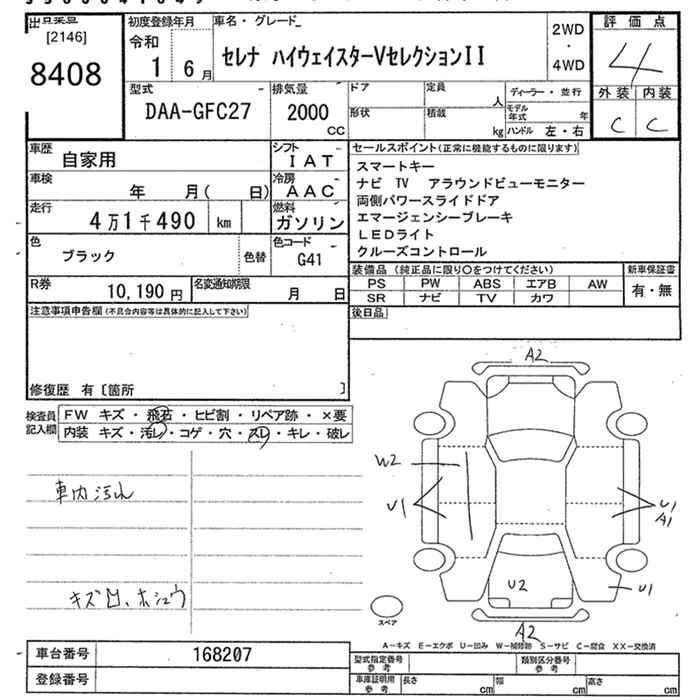 出品票
[2146]
8408
初度登録年月
令和
1 6月
車名・グレード
セレナ ハイウェイスターVセレクションII
2WD
・
4WD
評価点
4
外装 内装
C C
型式
DAA-GFC27
排気量
2000
CC
ドア
定員
人
形状
積載
kg
ディーラー・並行
モデル年式
年
ハンドル 左・右
車歴
自家用
シフト
IAT
車検
年 月( 日)
冷房
AAC
走行
4万1千490 km
燃料
ガソリン
色
ブラック
色替
色コード
G41
R券
10,190円
名変通知期限
月 日
セールスポイント(正常に機能するものに限ります)
スマートキー
ナビ TV アラウンドビューモニター
両側パワースライドドア
エマージェンシーブレーキ
LEDライト
クルーズコントロール
装備品 (純正品に限り○をつけてください)
PS PW ABS エアB AW
SR ナビ TV カワ
新車保証書
有・無
後日品
注意事項申告欄(不具合内容等は具体的に記入して下さい)
修復歴 有 [箇所 ]
検査員記入欄
FW キズ・飛石・ヒビ割・リペア跡・×要
内装 キズ・汚レ・コゲ・穴・スレ・キレ・破レ
車内汚れ
キズ凹、ホシュウ
A2
W2
U1
U1
A1
U2
U1
A2
スペア
A-キズ E-エクボ U-凹み W-補修跡 S-サビ C-腐食 XX-交換済
車台番号
168207
登録番号
型式指定番号
参考
類別区分番号
参考
車庫証明用
参考
長さ cm
幅 cm
高さ cm